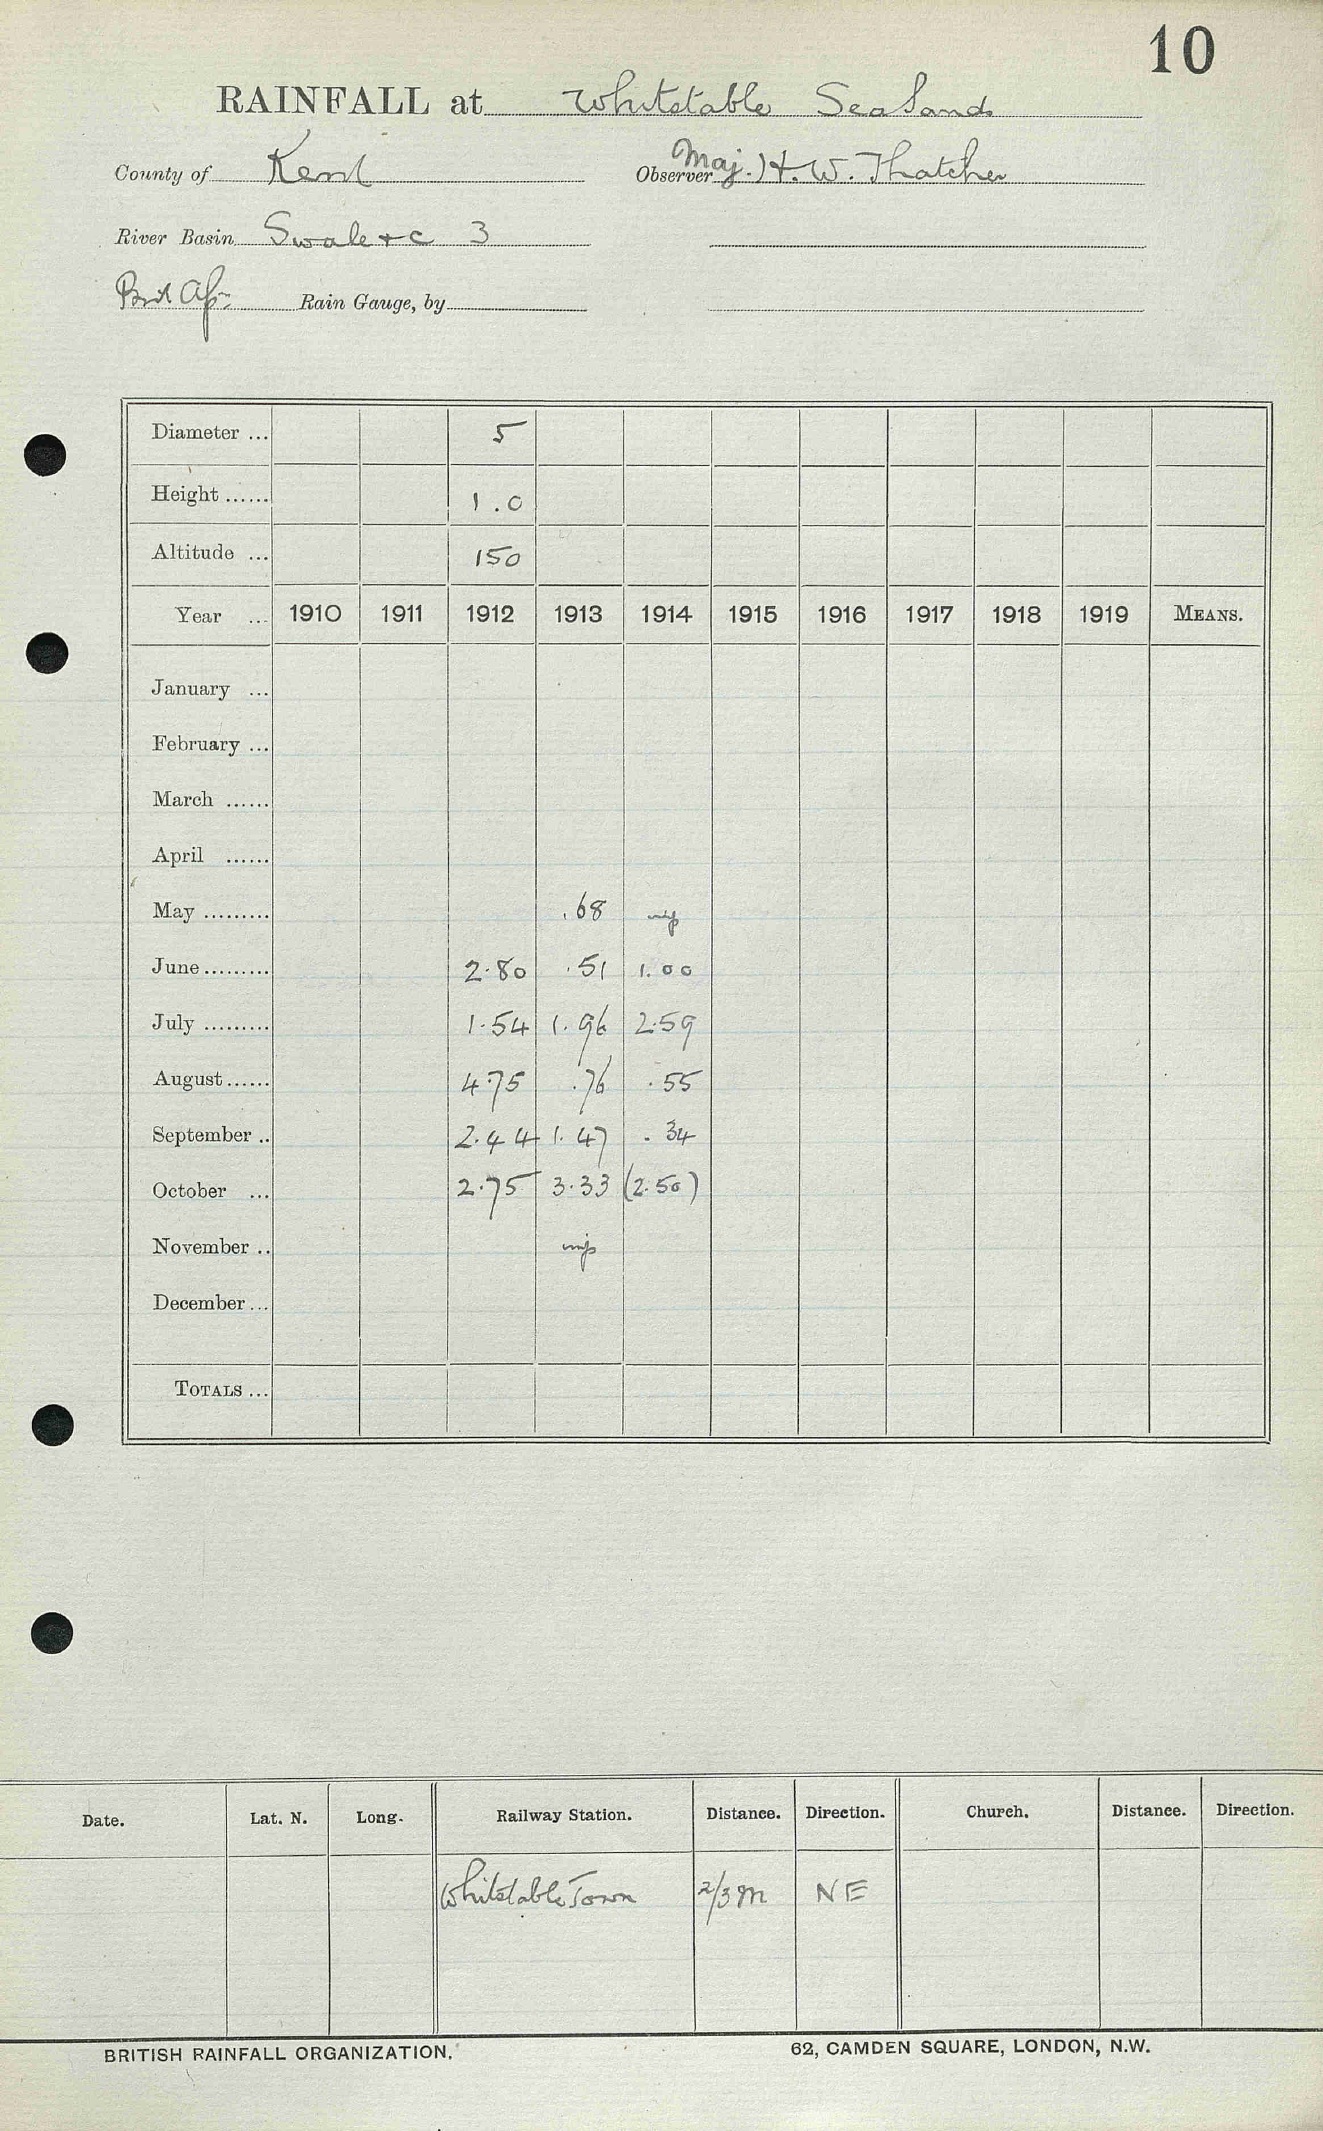 10
RAINFALL at Whitstable Sealands
County of Kent Observer Maj. H. W. Thatcher
River Basin Swale +c 3
Rain Gauge, by
Diameter ... 5
Height ...... 1.0
Altitude ... 150
Year ... 1910 1911 1912 1913 1914 1915 1916 1917 1918 1919 MEANS.
January ...
February ...
March ......
April ......
May ......... .68
June ......... 2.80 .51 1.00
July ......... 1.54 1.96 2.59
August ...... 4.75 .76 .55
September .. 2.44 1.47 .34
October ... 2.75 3.33 (2.50)
November ..
December ...
TOTALS ...
Date. Lat. N. Long. Railway Station. Distance. Direction. Church. Distance. Direction.
Whitstable Town 2/3 m NE
BRITISH RAINFALL ORGANIZATION. 62, CAMDEN SQUARE, LONDON, N.W.